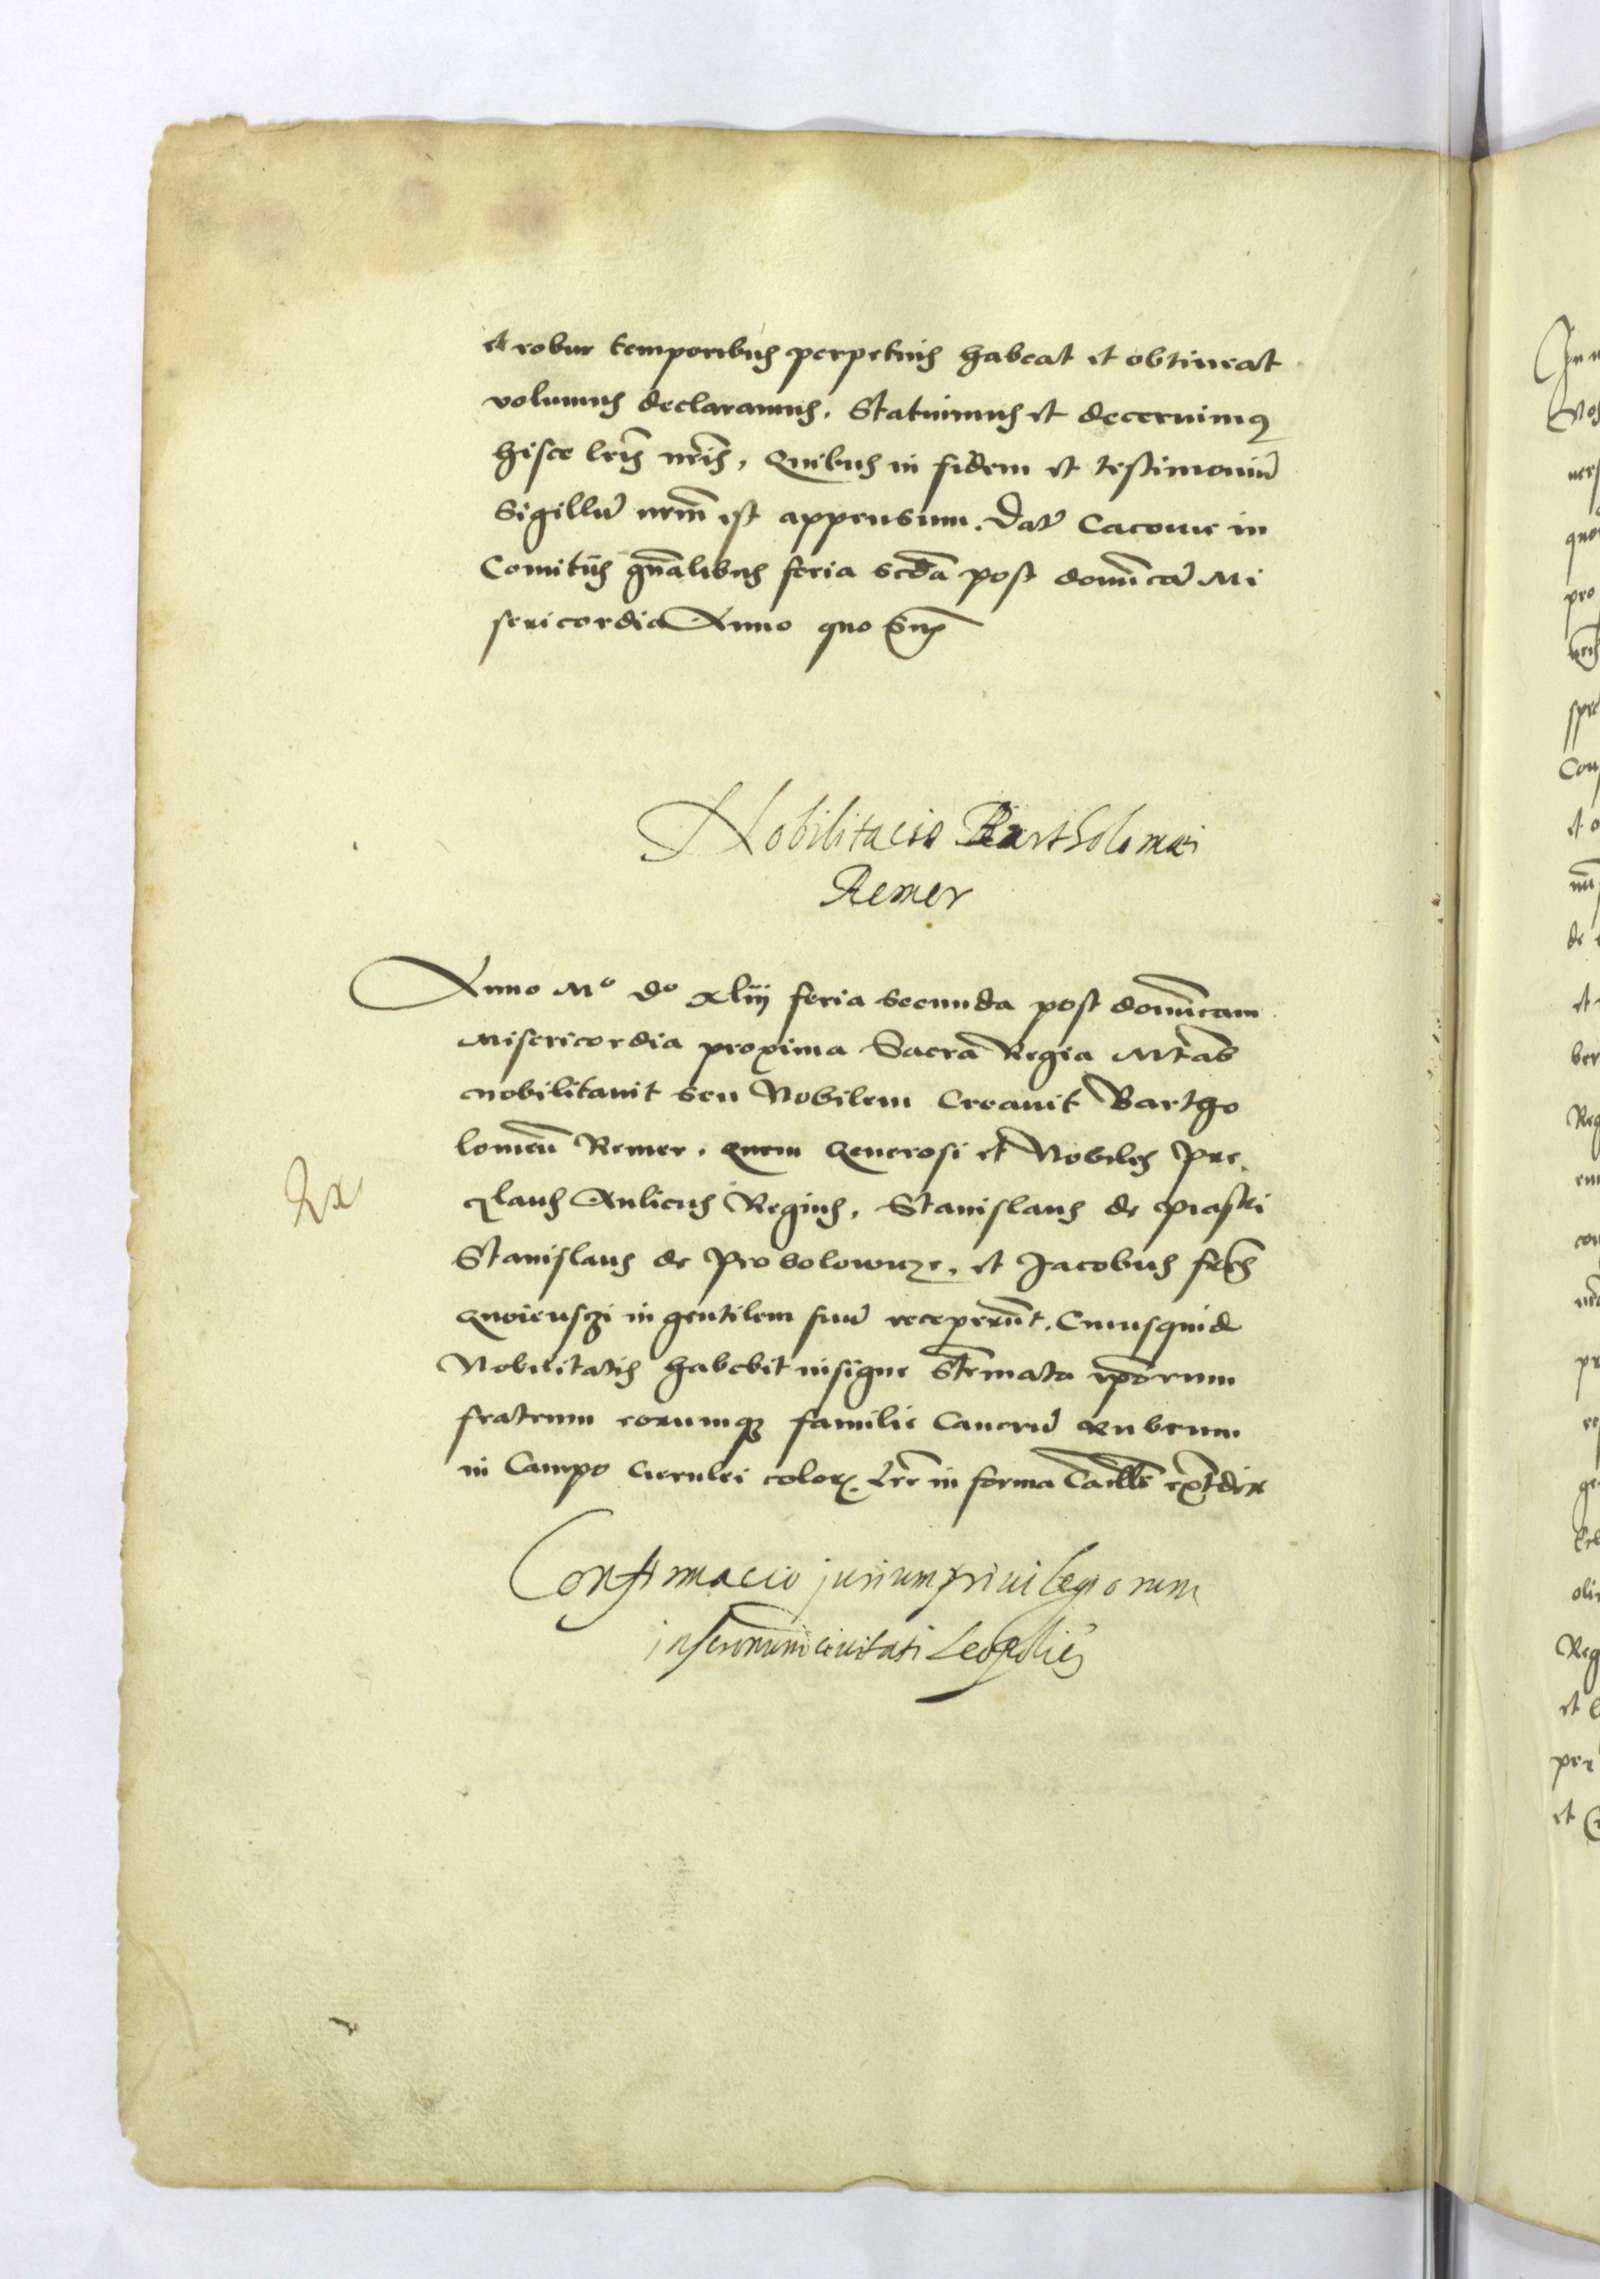 et robur temporibus perpetuis habeat et obtineat
volumus declaramus. Statuimus et decernimus
hisce lrīs nrīs, Quibus in fidem et testimoniū
Sigillū nrm̄ est appensum. Datū Cracovie in
Comitiis gn̄alibus feria scdā post dominicā Mi
sericordia Anno quo Sup̄
Nobilitacio Bartholomei
Remer
Anno Mº dº xliij feria secunda post domīcam
Misericordia proxima Sacra Regia Mtas
nobilitavit seu Nobilem Creavit Bartho
lomeū Remer. quem Generosi et Nobiles Pre
claus Aulicus Regius, Stanislaus de
Stanislaus de et Jacobus
Gnoienszi in gentilem suū receperūt. Cuiusquid
Nobilitatis habebit insigne Stēmata ip̄orum
fratrum eorumq familie Cancrū rubrum
in Campo Cerulei color. Lrē in forma Cancell extradite
Confirmacio jurium privilegiorum
civitati Leopolien